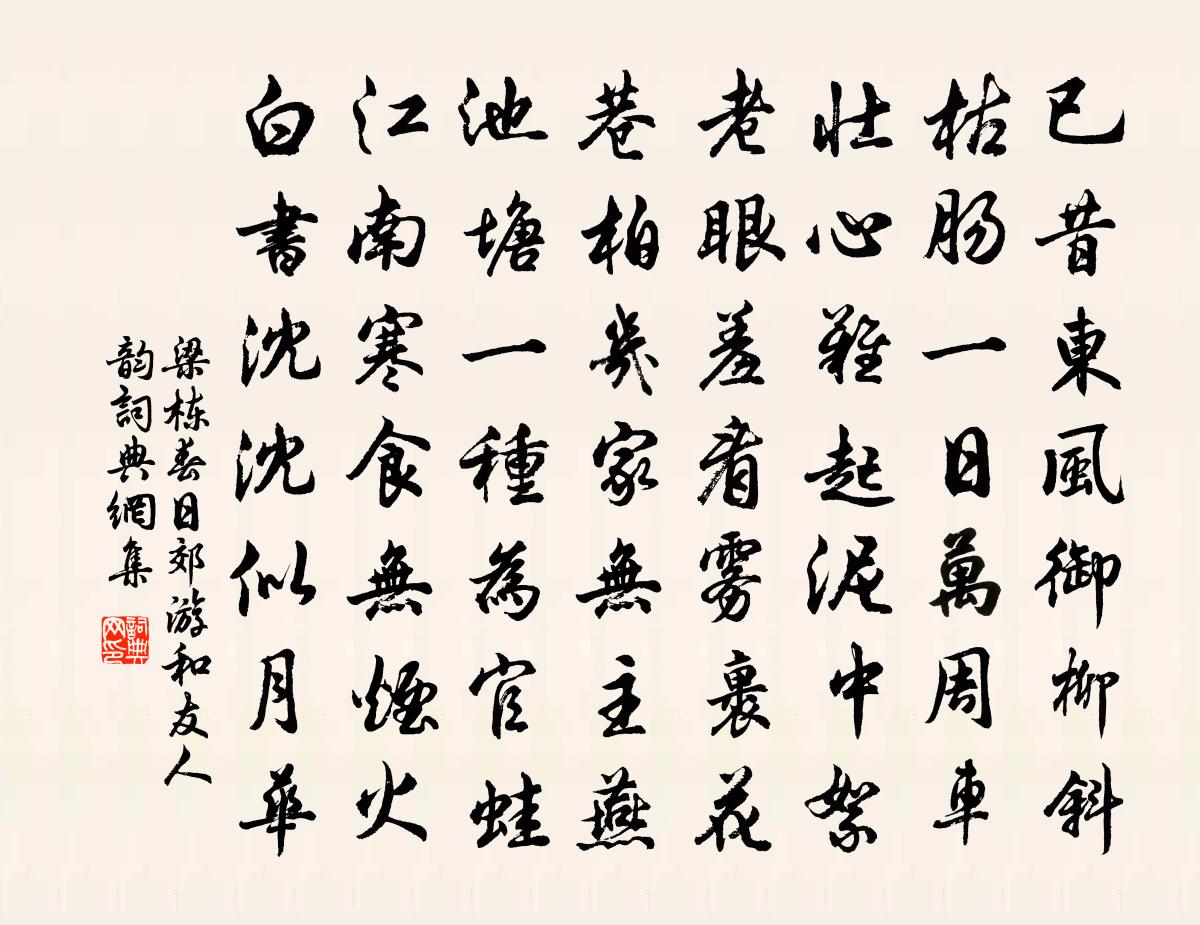 已昔東風御柳斜
枯肠一日萬周車
壮心難起泥中絮
老眼羞看雾裹花
巷柏幾家無主燕
池塘一種為官蛙
江南寒食無煙火
白書沈沈似月華
梁栋春日郊游和友人
韵詞典網集
詞典网印